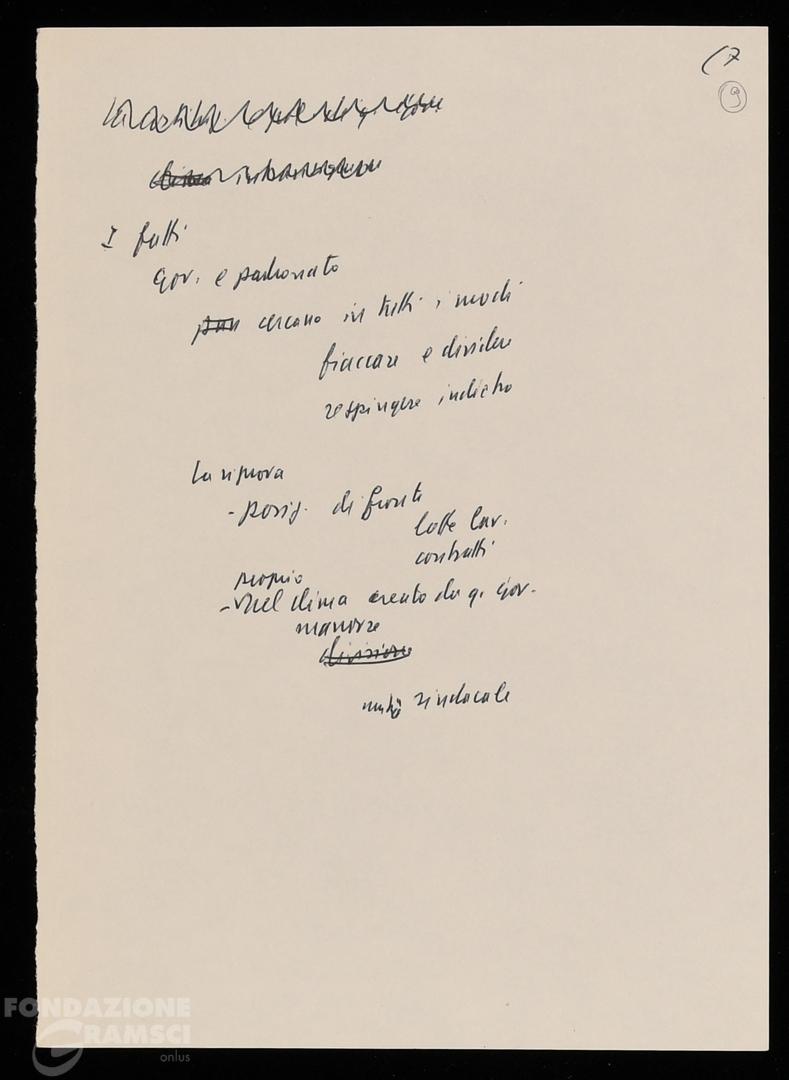 (7
9
I fatti
gov. e padronato
cercano in tutti i modi
fiaccare e dividere
respingere indietro
La riprova
- posiz. di fronte
lotte lav.
contratti
proprio
- nel clima creato da q. gov.
manovre
divisione
unità sindacale
FONDAZIONE
GRAMSCI
onlus